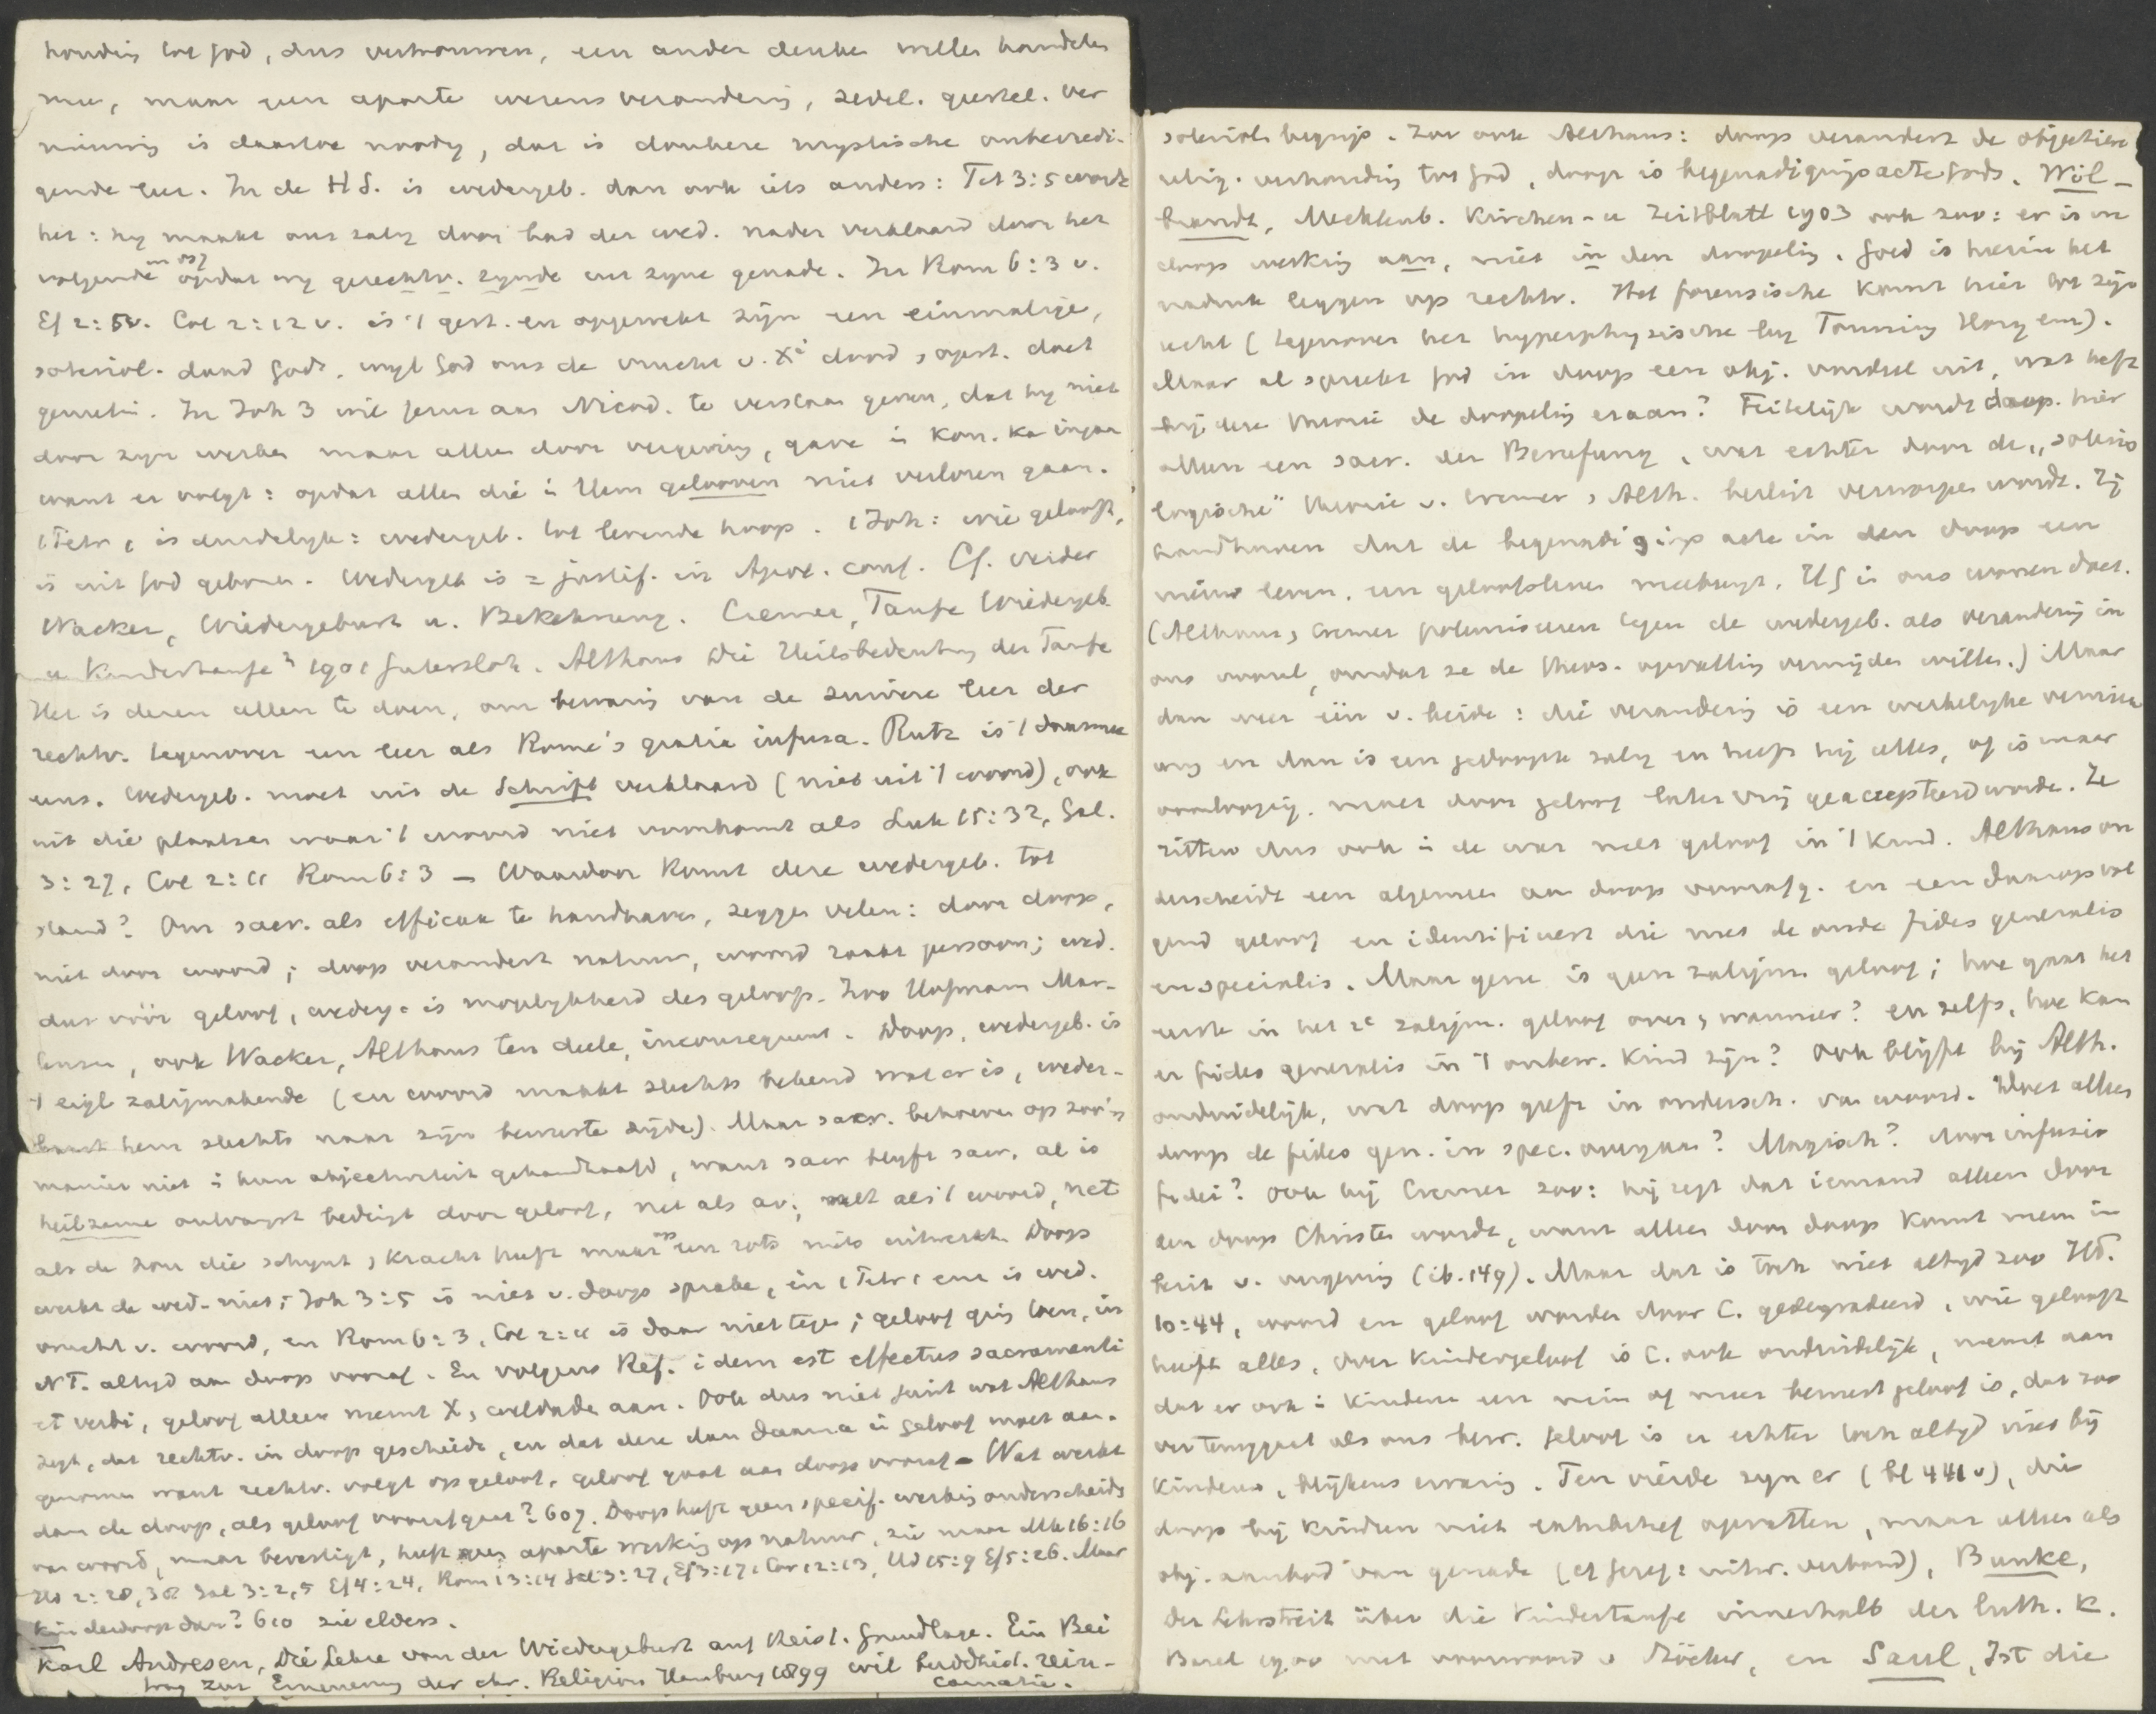 houding tot God, dus vertrouwen, een ander denken willen handelen
mee, maar geen aparte wezensverandering, zedel. geestel. ver
nieuwing is daartoe noodig, dat is donkere mystische onbevredi-
gende leer. In de H S. is wedergeb. dan ook iets anders: Tit 3:5 wordt
het: hy maakt ons zalig door bad der wed. nader verklaard door het
volgende in vs 7 opdat wy gerechtv. zynde uit zyne genade. In Rom 6:3 v.
Ef 2:5v. Col 2:12 v. is 't gest. en opgewekt zijn een einmalige,
soteriol. daad Gods, wyl God ons de vrucht v. Xi dood, opst. doet
genieten. In Joh 3 wil Jezus aan Nicod. te verstaan geven, dat hy niet
door zyn werken maar alleen door vergeving, gave in Kon. kan ingaan
want er volgt: opdat allen die in Hem gelooven niet verloren gaan.
1 Petr 1 is duidelyk: wedergeb. tot levende hoop. 1 Joh: wie gelooft,
is uit God geboren. Wedergeb is = justif. in Apol. conf. Cf. verder
Wacker, Wiedergeburt u. Bekehrung. Cremer, Taufe Wiedergeb.
u Kindertaufe 2 1901 Gutersloh. Althaus Die Heilsbedeutung der Taufe
Het is dezen allen te doen, om bewaring van de zuivere leer der
rechtv. tegenover een leer als Rome's gratia infusa. Rutz is 't daarmee
eens. Wedergeb. moet uit de Schrift verklaard (niet uit 't woord), ook
uit die plaatsen waar 't woord niet voorkomt als Luk 15:32, Gal.
3:27, Col 2:11 Rom 6:3 — Waardoor komt deze wedergeb. tot
stand? Om sacr. als efficax te handhaven, zeggen velen: door doop,
niet door woord; doop verandert natuur, woord raakt persoon; wed.
dus vóór geloof, wederg. is mogelykheid des geloofs. Zoo Hofmann Mar-
tensen, ook Wacker, Althaus ten deele, inconsequent. Doop, wedergeb. is
't eigl zaligmakende (en woord maakt slechts bekend wat er is, weder-
baart hem slechts naar zijn bewuste zijde). Maar sacr. behoeven op zoo'n
manier niet in hun objectiviteit gehandhaafd, want sacr blyft sacr. al is
heilzame ontvangst bedingt door geloof, net als av; net als 't woord, net
als de zon die schynt, kracht heeft maar op een rots niets uitwerkt. Doop
werkt de wed. niet; Joh 3:5 is niet v. doop sprake, in 1 Petr 1 enz is wed.
vrucht v. woord, en Rom 6:3, Col 2:11 is daar niet tegen; geloof ging toen, in
NT. altyd aan doop vooraf. En volgens Ref. idem est effectus sacramenti
et verbi, geloof alleen neemt X, weldaden aan. Ook dus niet juist wat Althaus
zegt, dat rechtv. in doop geschiedt, en dat deze dan daarna in geloof moet aan-
genomen want rechtv. volgt op geloof, geloof gaat aan doop vooraf — Wat werkt
dan de doop, als geloof voorafgaat? 607. Doop heeft geen specif. werking onderscheiden
van woord, maar bevestigt, heeft geen aparte werking op natuur, zie maar Mk 16:16
Hd 2:28, 38 Gal 3:2,5 Ef 4:24, Rom 13:14 Gal 3:27, Ef 3:17, 1 Cor 12:13, Hd 15:9 Ef 5:26. Maar
kinderdoop dan? 610 zie elders.
Karl Andresen, Die Lehre von der Wiedergeburt auf theist. Grundlage. Ein Bei
trag zur Erneuerung der chr. Religion Hamburg 1899 wil buddhist. rein-
carnatie.
soteriol. begrip. Zoo ook Althaus: doop verandert de objectieve
relig. verhouding tot God, doop is begenadigingsacte Gods. Wöl-
brandt, Mecklenb. Kirchen- u Zeitblatt 1903 ook zoo: er is in
doop werking aan, niet in den doopeling. Goed is hierin het
nadruk leggen op rechtv. Het forensische komt hier tot zijn
recht (tegenover het hyperphysische by Tomning Hory enz).
Maar al spreekt God in doop een obj. oordeel uit, wat heeft
bij deze theorie de doopeling eraan? Feitelijk wordt doop. hier
alleen een sacr. der Berufung, wat echter door de „soterio
logische" theorie v. Cremer, Alth. beslist verworpen wordt. Zij
handhaven dat de begenadigingsacte in den doop een
nieuw leven, een geloofsleven meebrengt. HG in ons wonen doet.
(Althaus, Cremer polemiseeren tegen de wedergeb. als verandering in
ons vooral, omdat ze de theos. opvatting vermijden willen.) Maar
dan weer één v. beide: die verandering is een werkelyke vernieu
wing en dan is een gedoopte zalig en heeft hij alles, of is maar
voorloopig, moet door geloof later vrij geaccepteerd worden. Ze
zitten dus ook in de war met geloof in 't kind. Althaus on
derscheidt een algemeen aan doop voorafg. en een daaropvol
gend geloof en identificeert die met de oude fides generalis
en specialis. Maar gene is geen zaligm. geloof; hoe gaat het
eerste in het 2e zaligm. geloof over, wanneer? en zelfs, hoe kan
er fides generalis in 't onbew. kind zijn? Ook blijft bij Alth.
onduidelijk, wat doop geeft in ondersch. van woord. Doet alleen
doop de fides gen. in spec. overgaan? Magisch? door infusio
fidei? Ook bij Cremer zoo: hij zegt dat iemand alleen door
den doop Christen wordt, want alleen door doop komt men in
bezit v. vergeving (ib. 149). Maar dat is toch niet altyd zoo Hd.
10:44, woord en geloof worden door C. gedegradeerd, wie gelooft
heeft alles, over kindergeloof is C. ook onduidelijk, neemt aan
dat er ook in kinderen een min of meer bewust geloof is, dat zoo
ver teruggaat als ons bew. geloof is er echter toch altyd niet bij
kinderen, blijkens ervaring. Ten vierde zyn er (bl 441v), die
doop bij kinderen niet exhibitief opvatten, maar alleen als
obj. aanbod van genade (cf Geref: uitw. verbond), Bunke,
Der Lehrstreit über die Kindertaufe innerhalb der luth. K.
Kassel 1900 met voorwoord v Stöcker, en Saul, Ist die